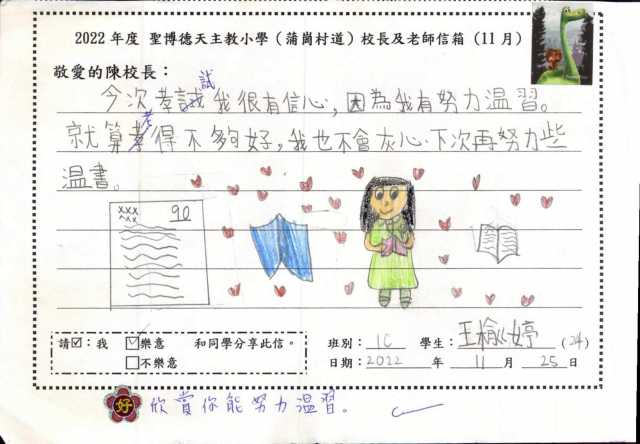 2022 年度 聖博德天主教小學（蒲崗村道）校長及老師信箱（11月）
敬愛的陳校長：
今次考試我很有信心，因為我有努力溫習。
就算考得不夠好，我也不會灰心，下次再努力些
溫書。
xxx
xxx
90
請☑：我 ☑樂意 和同學分享此信。
□不樂意
班別：1C 學生：王榆婷 (24)
日期：2022 年 11 月 25 日
好 欣賞你能努力溫習。